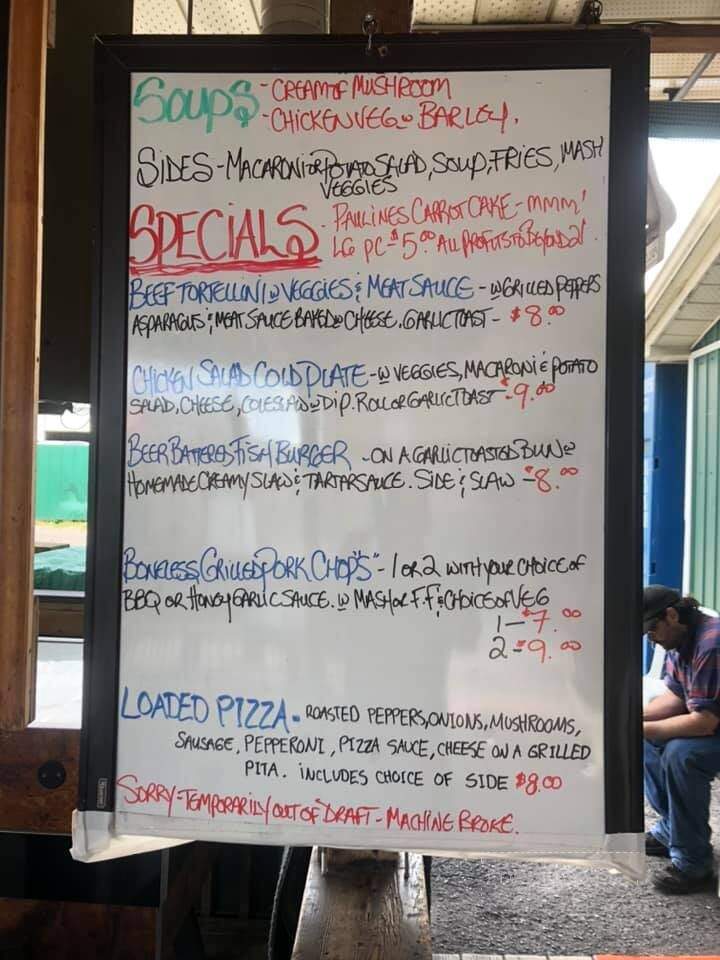 SOUPS - CREAM OF MUSHROOM
- CHICKEN VEG w BARLEY.
SIDES - MACARONI or POTATO SALAD, SOUP, FRIES, MASH
VEGGIES
SPECIALS - PAULINES CARROT CAKE - mmm!
LG PC - 5.00 ALL PROFITS TO
BEEF TORTELLINI w VEGGIES & MEAT SAUCE - w GRILLED PEPPERS
ASPARAGUS & MEAT SAUCE BAKED w CHEESE. GARLIC TOAST - $8.00
CHICKEN SALAD COLD PLATE - w VEGGIES, MACARONI & POTATO
SALAD, CHEESE, COLESLAW w DIP. ROLL OR GARLIC TOAST - $9.00
BEER BATTERED FISH BURGER - ON A GARLIC TOASTED BUN w
HOMEMADE CREAMY SLAW & TARTAR SAUCE. SIDE & SLAW - $8.00
BONELESS GRILLED PORK CHOP'S" - 1 OR 2 WITH YOUR CHOICE OF
BBQ OR HONEY GARLIC SAUCE. w MASH OR F.F & CHOICE OF VEG
1 - $7.00
2 - $9.00
LOADED PIZZA - ROASTED PEPPERS, ONIONS, MUSHROOMS,
SAUSAGE, PEPPERONI, PIZZA SAUCE, CHEESE ON A GRILLED
PITA. INCLUDES CHOICE OF SIDE $8.00
SORRY - TEMPORARILY OUT OF DRAFT - MACHINE BROKE.